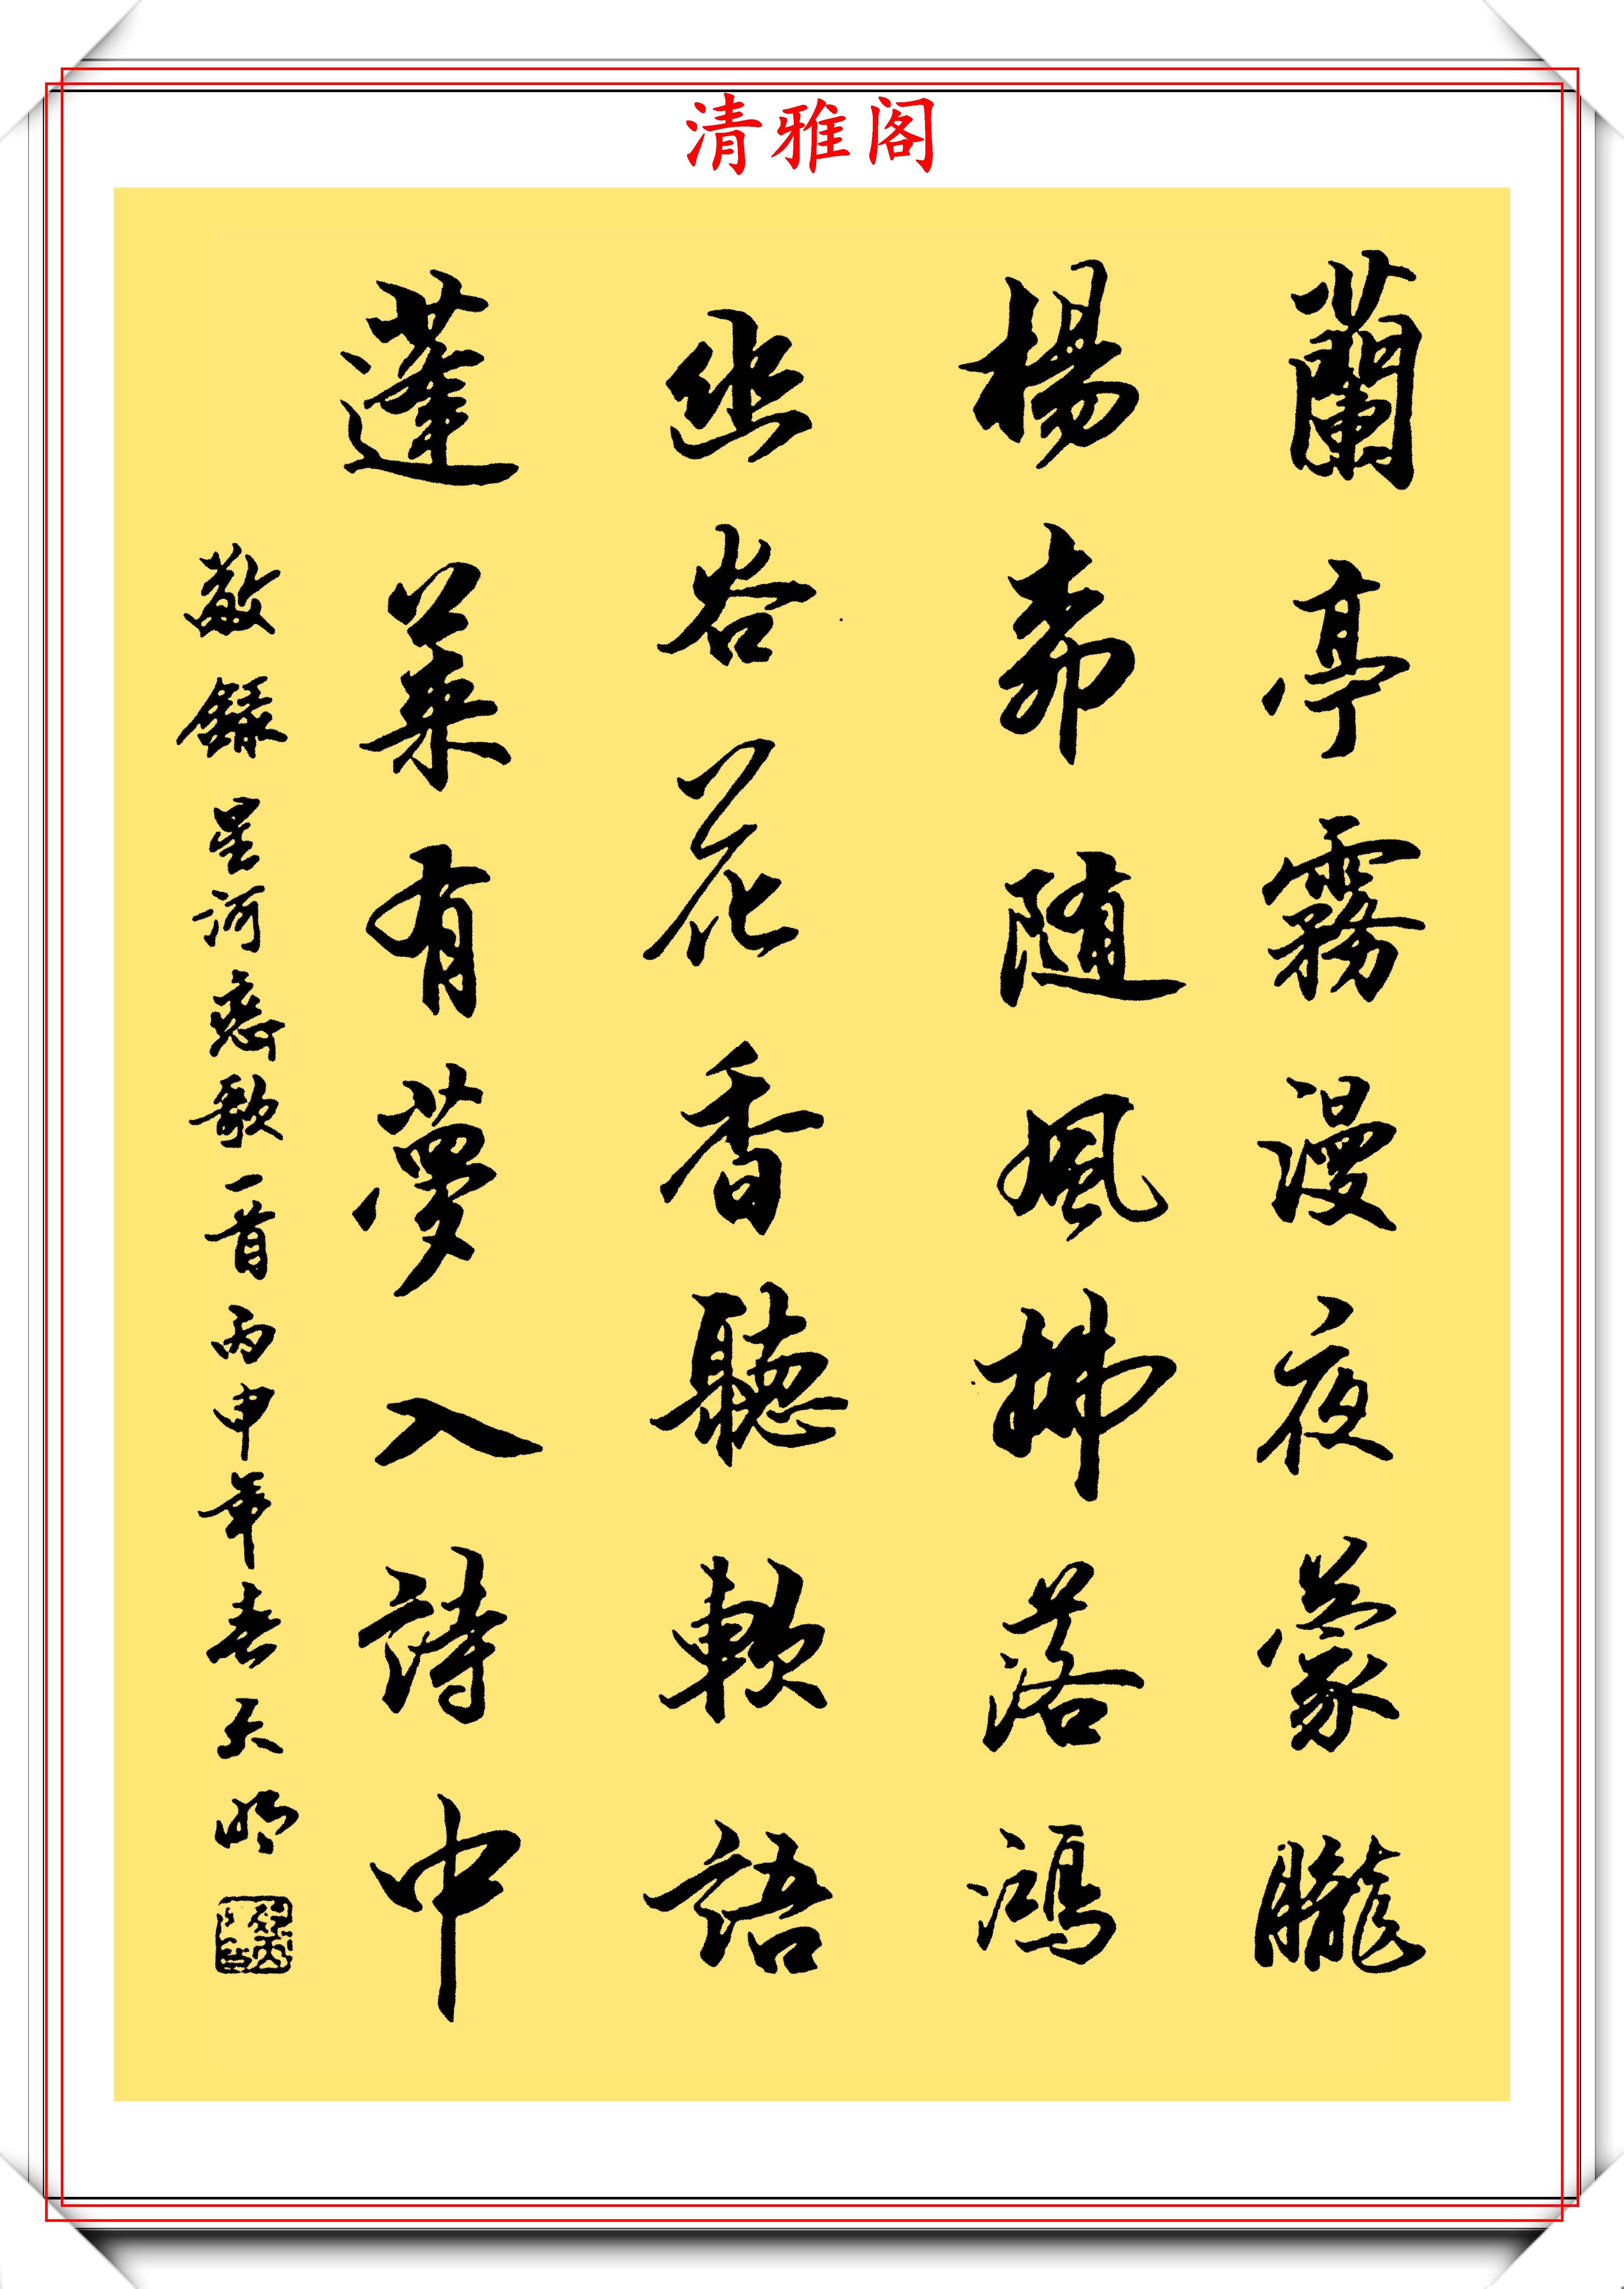 清雅阁
蘭亭霧漫夜蒙朧
楊柳随風拂落鴻
幽谷花香聽軟語
蓬萊有夢入詩中
敬錄星河戀歌一首丙申年春大明